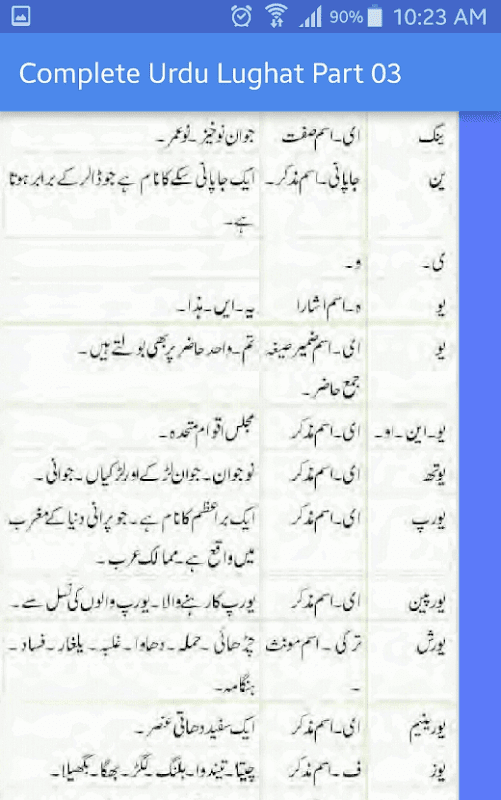 90% 10:23 AM
Complete Urdu Lughat Part 03
ینگ ای۔اسم صفت جوان نوخیز۔نوعمر۔
ین جاپانی۔اسم مذکر۔ ایک جاپانی سکے کا نام ہے جو ڈالر کے برابر ہوتا
ہے۔
ی۔ و۔
یو ہ۔اسم اشارا یہ۔ایں۔ہذا۔
یو ای۔اسم ضمیر صیغہ تم۔واحد حاضر پر بھی بولتے ہیں۔
جمع حاضر۔
یو۔این۔او۔ ای۔اسم مذکر مجلس اقوام متحدہ۔
یوتھ ای۔اسم مذکر نوجوان۔جوان لڑکے اور لڑکیاں۔جوانی۔
یورپ ای۔اسم مذکر ایک براعظم کا نام ہے۔جو پرانی دنیا کے مغرب
میں واقع ہے۔ممالک عرب۔
یورپین ای۔اسم مذکر یورپ کا رہنے والا۔یورپ والوں کی نسل سے۔
یورش ترکی۔اسم مونث چڑھائی۔حملہ۔دھاوا۔غلبہ۔یلغار۔فساد۔
۔ ہنگامہ۔
یورینیم ای۔اسم مذکر ایک سفید دھاتی عنصر۔
یوز ف۔اسم مذکر چیتا۔تیندوا۔پلنگ۔لگڑ۔بھگا۔بگھیلا۔